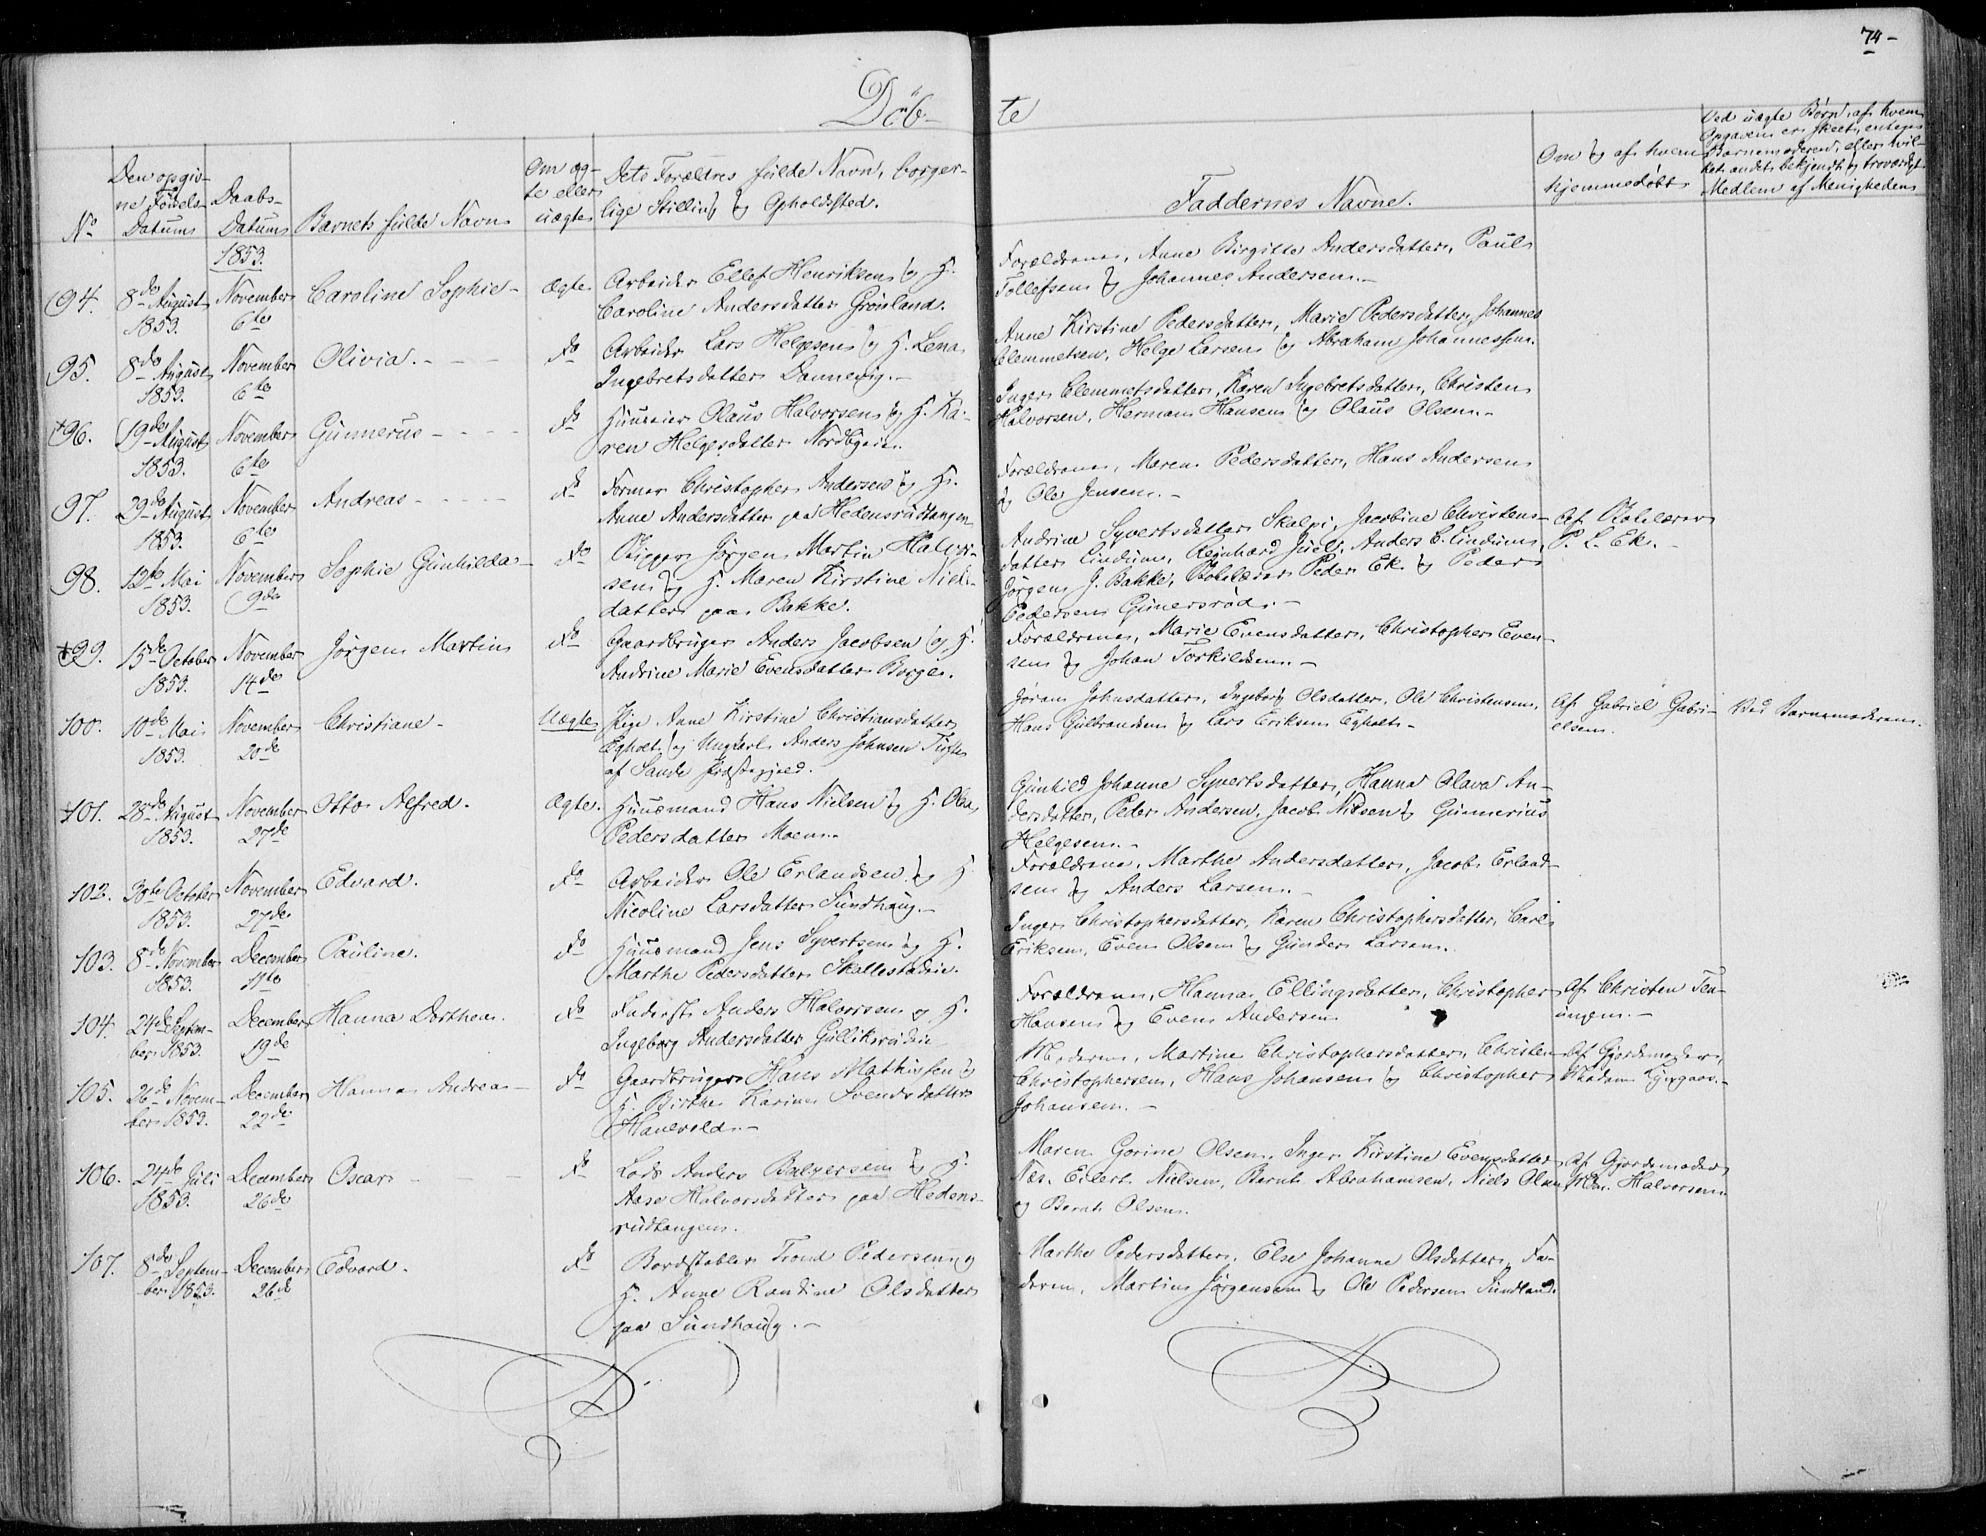 74-
Döb-
te
No
Den opgiv-
ne Födels-
Datum
Daabs-
Datum
Barnets fulde Navn
Om æg-
te eller
uægte
Dets Forældres fulde Navn, borger-
lige Stilling og Opholdssted.
Faddernes Navne.
Om og af hvem
hjemmedöbt
Ved uægte Börn, af hvem
Opgaven er skeet, enten
Barnemoderen, eller hvil-
ket andet bekjendt og troværdigt
Medlem af Menigheden
1853.
94.
8de August
1853.
November
6te
Caroline Sophie-
Ægte
Arbeider Ellef Henriksen og H.
Caroline Andersdatter Grönland.
Forældrene, Anne Birgitte Andersdatter, Paul
Tollefsen og Johannes Andersen.-
95.
8de August
1853.
November
6te
Olivia.-
Do
Arbeider Lars Helgesen og H. Lena
Ingebretsdatter Dannevig.-
Anne Kirstine Pedersdatter, Marie Pedersdatter, Johannes
Clemmetsen, Helge Larsen og Abraham Johannessen.
+96.
19de August
1853.
November
6te
Gunnerus-
Do
Huuseier Olaus Halvorsen og H. Ka-
ren Helgesdatter
Inger Clemmetsdatter, Karen Ingebretsdatter, Christen
Halvorsen, Herman Hansen og Olaus Olsen.-
97.
29de August
1853.
November
6te
Andreas-
Do
Former Christopher Andersen og H.
Anne Andersdatter paa Hedensrudtangen
Forældrene, Maren Pedersdatter, Hans Andersen
og Ole Jensen.-
98.
12te Mai
1853.
November
9de
Sophie Gunhilda-
Do
Skipper Jörgen Martin Halvor-
sen og H. Maren Kirstine Niels-
datter paa Bakke.
Andrine Syvertsdatter Skalpi, Jacobine Christens-
datter Lindum, Reinhard Juel, Anders C. Lindum,
Jörgen J. Bakke, Skolelærer Peder Ek. og Peder
Pedersen Gunersröd.-
Af Skolelærer
P. L. Ek.-
+99.
15de October
1853.
November
14de
Jörgen Martin
Do
Gaardbruger Anders Jacobsen og H.
Andrine Marie Evensdatter Borge.
Forældrene, Marie Evensdatter, Christopher Even-
sen og Johan Torkildsen.-
100.
10de Mai
1853.
November
20de
Christiane-
Uægte
Pige Anne Kirstine Christiansdatter
Egholt og Ungkarl Anders Johnsen
af Sande Præstegjeld.
Jöran Johnsdatter, Ingeborg Olsdatter, Ole Christensen,
Hans Gulbrandsen og Lars Eriksen Egholt-
Af Gabriel Gabri-
elsen.
Ved Barnemoderen.
+101.
28de August
1853.
November
27de
Otto Alfred.
Ægte.
Huusmand Hans Nielsen og H. Olea
Pedersdatter Moen.-
Gunhild Johanne Syvertsdatter, Hanna Olava An-
dersdatter, Peder Andersen, Jacob Nilsen og Gunnerius
Helgesen.-
102.
30te October
1853.
November
27de
Edvard.
Do
Arbeider Ole Erlandsen og H.
Nicoline Larsdatter Sundhaug.-
Forældrene, Marthe Andersdatter, Jacob Erland-
sen og Anders Larsen.-
103.
8de November
1853.
December
11te
Pauline.
Do
Huusmand Jens Syvertsen og H.
Marthe Pedersdatter Skallestadeie.
Inger Christophersdatter, Karen Christophersdatter, Carl
Eriksen, Even Olsen og Gunder Larsen.
104.
24de Septem-
ber 1853.
December
19de
Hanna Dorthea.
Do
Inderst Anders Halvorsen og H.
Ingeborg Andersdatter Gulliksrudeie
Forældrene, Hanna Ellingsdatter, Christopher
Hansen og Even Andersen
Af Christen Ten-
ungen.-
105.
26de Novem-
ber 1853.
December
22de
Hanna Andrea-
Do
Gaardbruger Hans Mathisen og
H. Birthe Karine Svendsdatter
Hanevold.-
Moderen, Martine Christophersdatter, Christen
Christophersen, Hans Johansen og Christopher
Johansen.-
Af Gjordemoder
Madam
106.
24de Juli
1853.
December
26de
Oscar
Do
Lods Anders Balzersen og H.
Aase Halvorsdatter paa Hedens-
rudtangen.
Maren Gorine Olsen, Inger Kirstine Evensdatter
Næs. Eilert Nielsen, Bernt Abrahamsen, Niels Olsen
og Bernt Olsen.
Af Gjordemoder
Mm. Halvorsen
107.
8de Septem-
ber 1853.
December
26de
Edvard.
Do
Bordstabler Trond Pedersen og
H. Anne Randine Olsdatter
paa Sundhaug.-
Marthe Pedersdatter, Else Johanne Olsdatter, Fa-
deren, Martin Jörgensen og Ole Pedersen Sundland